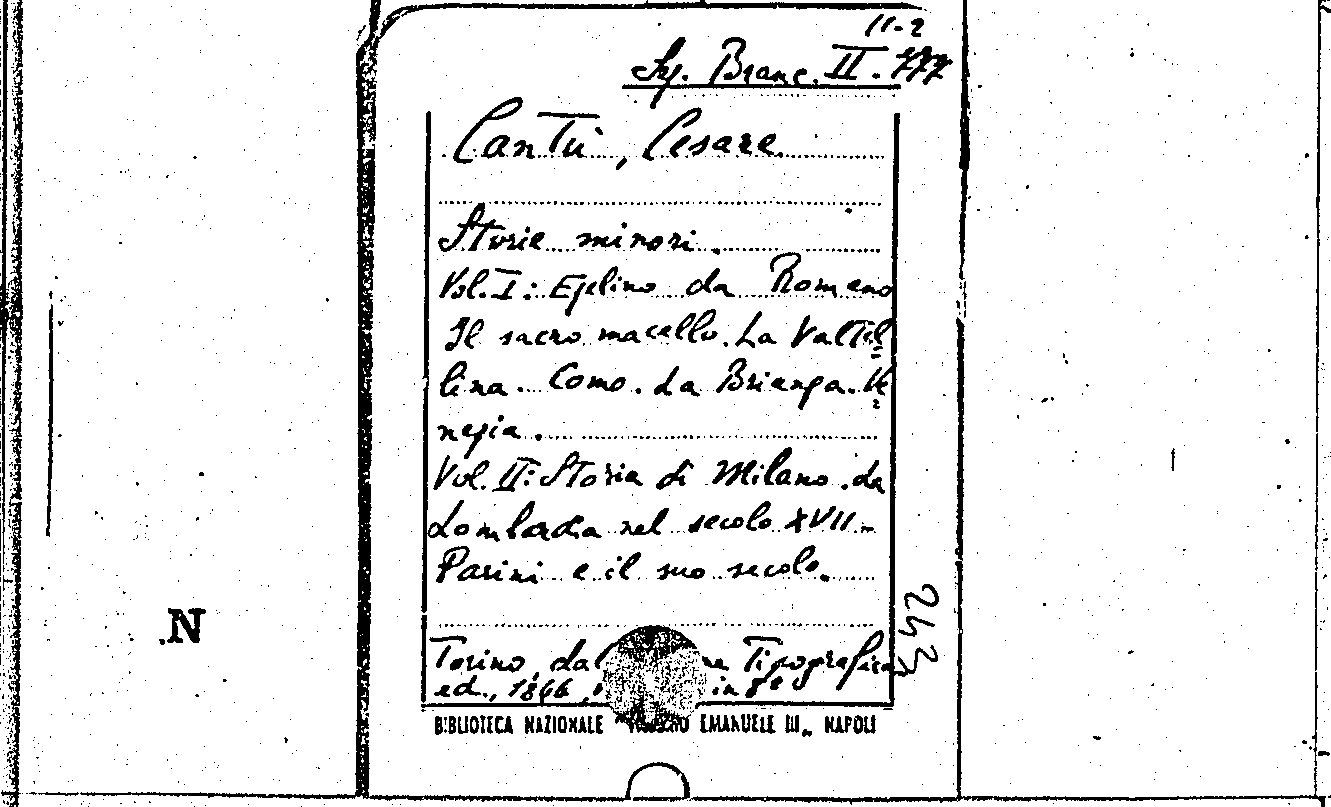 11-2
Sg. Branc. II. 777
Cantù, Cesare
Storie minori.
Vol. I: Ezelino da Romano
Il sacro macello. La Valtel=
lina. Como. La Brianza. Ve=
nezia.
Vol. II: Storia di Milano. La
Lombardia nel secolo XVII.-
Parini e il suo secolo.
Torino, dal Tipografica
ed., 1866, in 8°
243
N
BIBLIOTECA NAZIONALE EMANUELE III„ NAPOLI